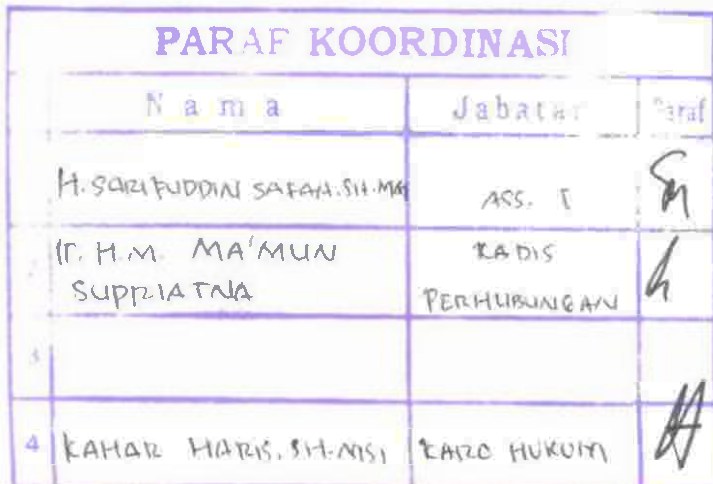 PARAF KOORDINASI
Nama Jabatan Paraf
H. SARIFUDDIN SAFAH. SH. MM ASS. I
Ir. H.M. MA'MUN KADIS
SUPRIATNA PERHUBUNGAN
3
4 KAHAR HARIS. SH. MSI KARO HUKUM